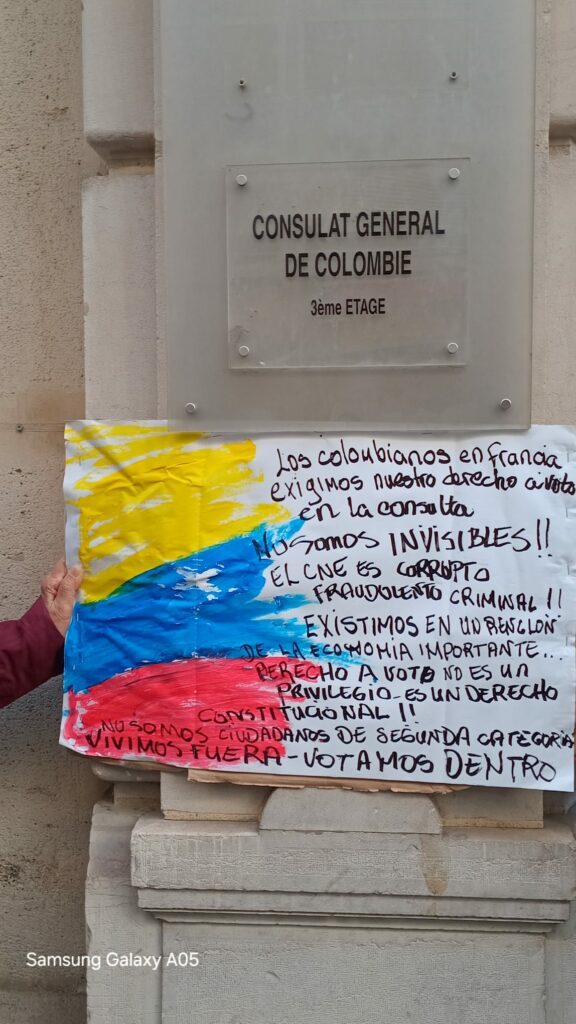 CONSULAT GENERAL
DE COLOMBIE
3ème ETAGE
Los coloubianos en francia
exigimos nuestro derecho a voto
en la consulta
NO SOMOS INVISIBLES!!
EL CNE ES CORRUPTO
FRAUDULENTO CRIMINAL!!
EXISTIMOS EN UN RENGLON
DE LA ECONOMIA IMPORTANTE...
DERECHO A VOTO NO ES UN
PRIVILEGIO-ES UN DERECHO
CONSTITUCIONAL!!
NO SOMOS CIUDADANOS DE SEGUNDA CATEGORIA
VIVIMOS FUERA-VOTAMOS DENTRO
Samsung Galaxy A05